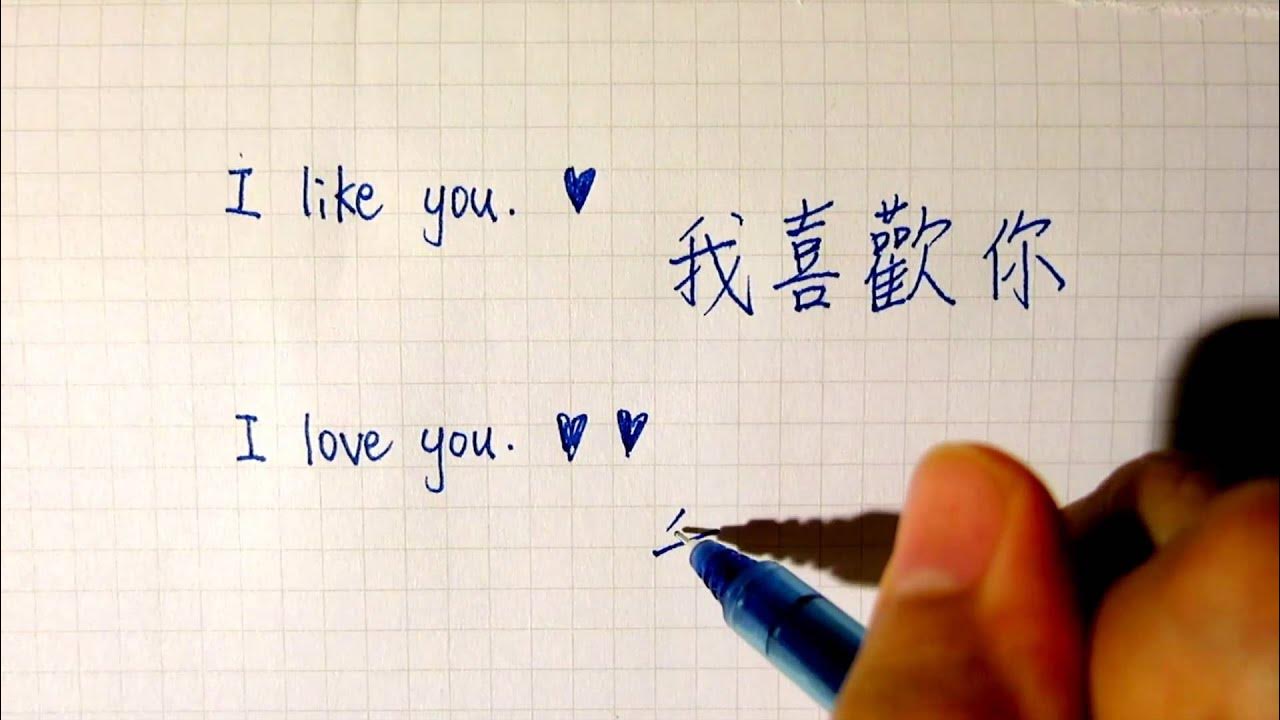 I like you. ♥
我喜歡你
I love you. ♥ ♥